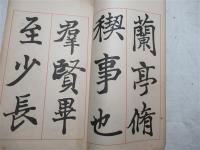 蘭亭脩
稧事也
羣賢畢
至少長